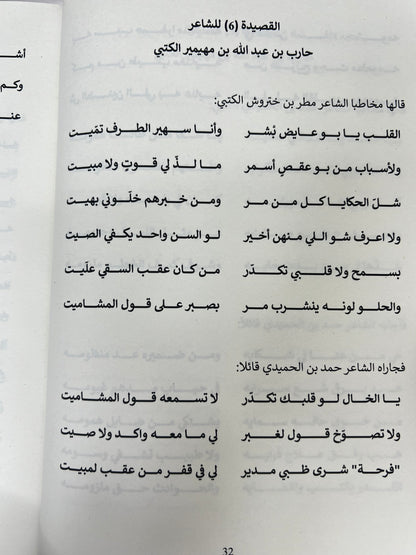 القصيدة (6) للشاعر
حارب بن عبد الله بن مهيمير الكتبي
قالها مخاطبا الشاعر مطر بن خترْوش الكتبي:
القلب يا بو عايض بْشر وأنا سهير الطرف تمّيت
ولأسباب من بو عقصٍ أسمر ما لذّ لي قوتٍ ولا مبيت
شلّ الحكايا كل من مر ومن خبرهم خلّوني بهيت
ولا اعرف شو اللي منهن أخير لو السن واحد يكفي الصيت
بسمح ولا قلبي تكدّر من كان عقب السقي علّيت
والحلو لونه ينشرب مر بصبر على قول المشاميت
فجاراه الشاعر حمد بن الحميدي قائلا:
يا الخال لو قلبك تكدّر لا تسمعه قول المشاميت
ولا تصوّخ قول لغبر لي ما معه واكد ولا صيت
"فرحة" شرى ظبي مدير لي في قفر من عقب لمبيت
32
أش
وكم
عنـ